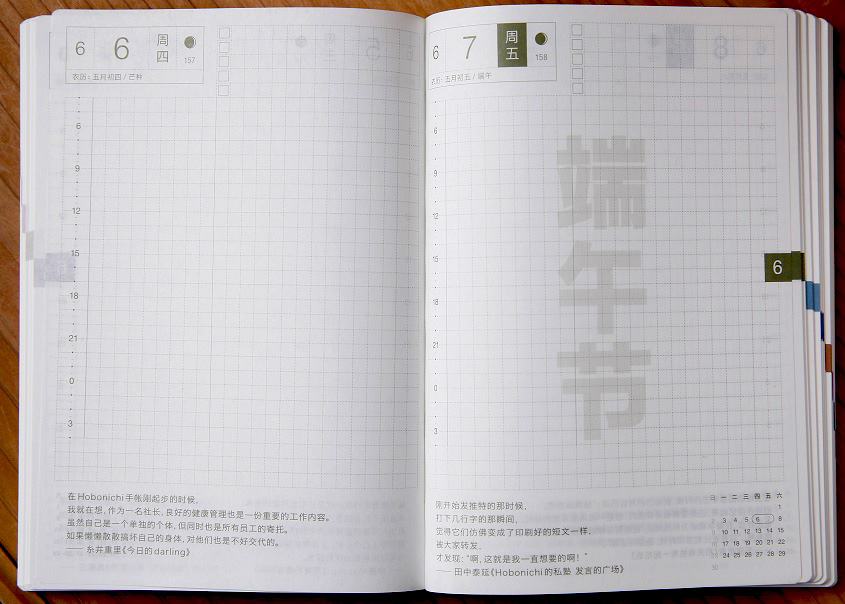 6 6 周四 157
农历：五月初四 / 芒种
6
9
12
15
18
21
0
3
在Hobonichi手帐刚起步的时候，
我就在想，作为一名社长，良好的健康管理也是一份重要的工作内容。
虽然自己是一个单独的个体，但同时也是所有员工的寄托。
如果懒懒散散搞坏自己的身体，对他们也是不好交代的。
—— 糸井重里《今日的darling》
6 7 周五 158
农历：五月初五 / 端午
6
9
12
15
18
21
0
3
端午节
6
刚开始发推特的那时候，
打下几行字的那瞬间，
觉得它们仿佛变成了印刷好的短文一样，
被大家转发，
才发现：“啊，这就是我一直想要的啊！”
—— 田中泰延《Hobonichi的私塾 发言的广场》
日 一 二 三 四 五 六
1
3 4 5 6 7 8
10 11 12 13 14 15
17 18 19 20 21 22
24 25 26 27 28 29
30